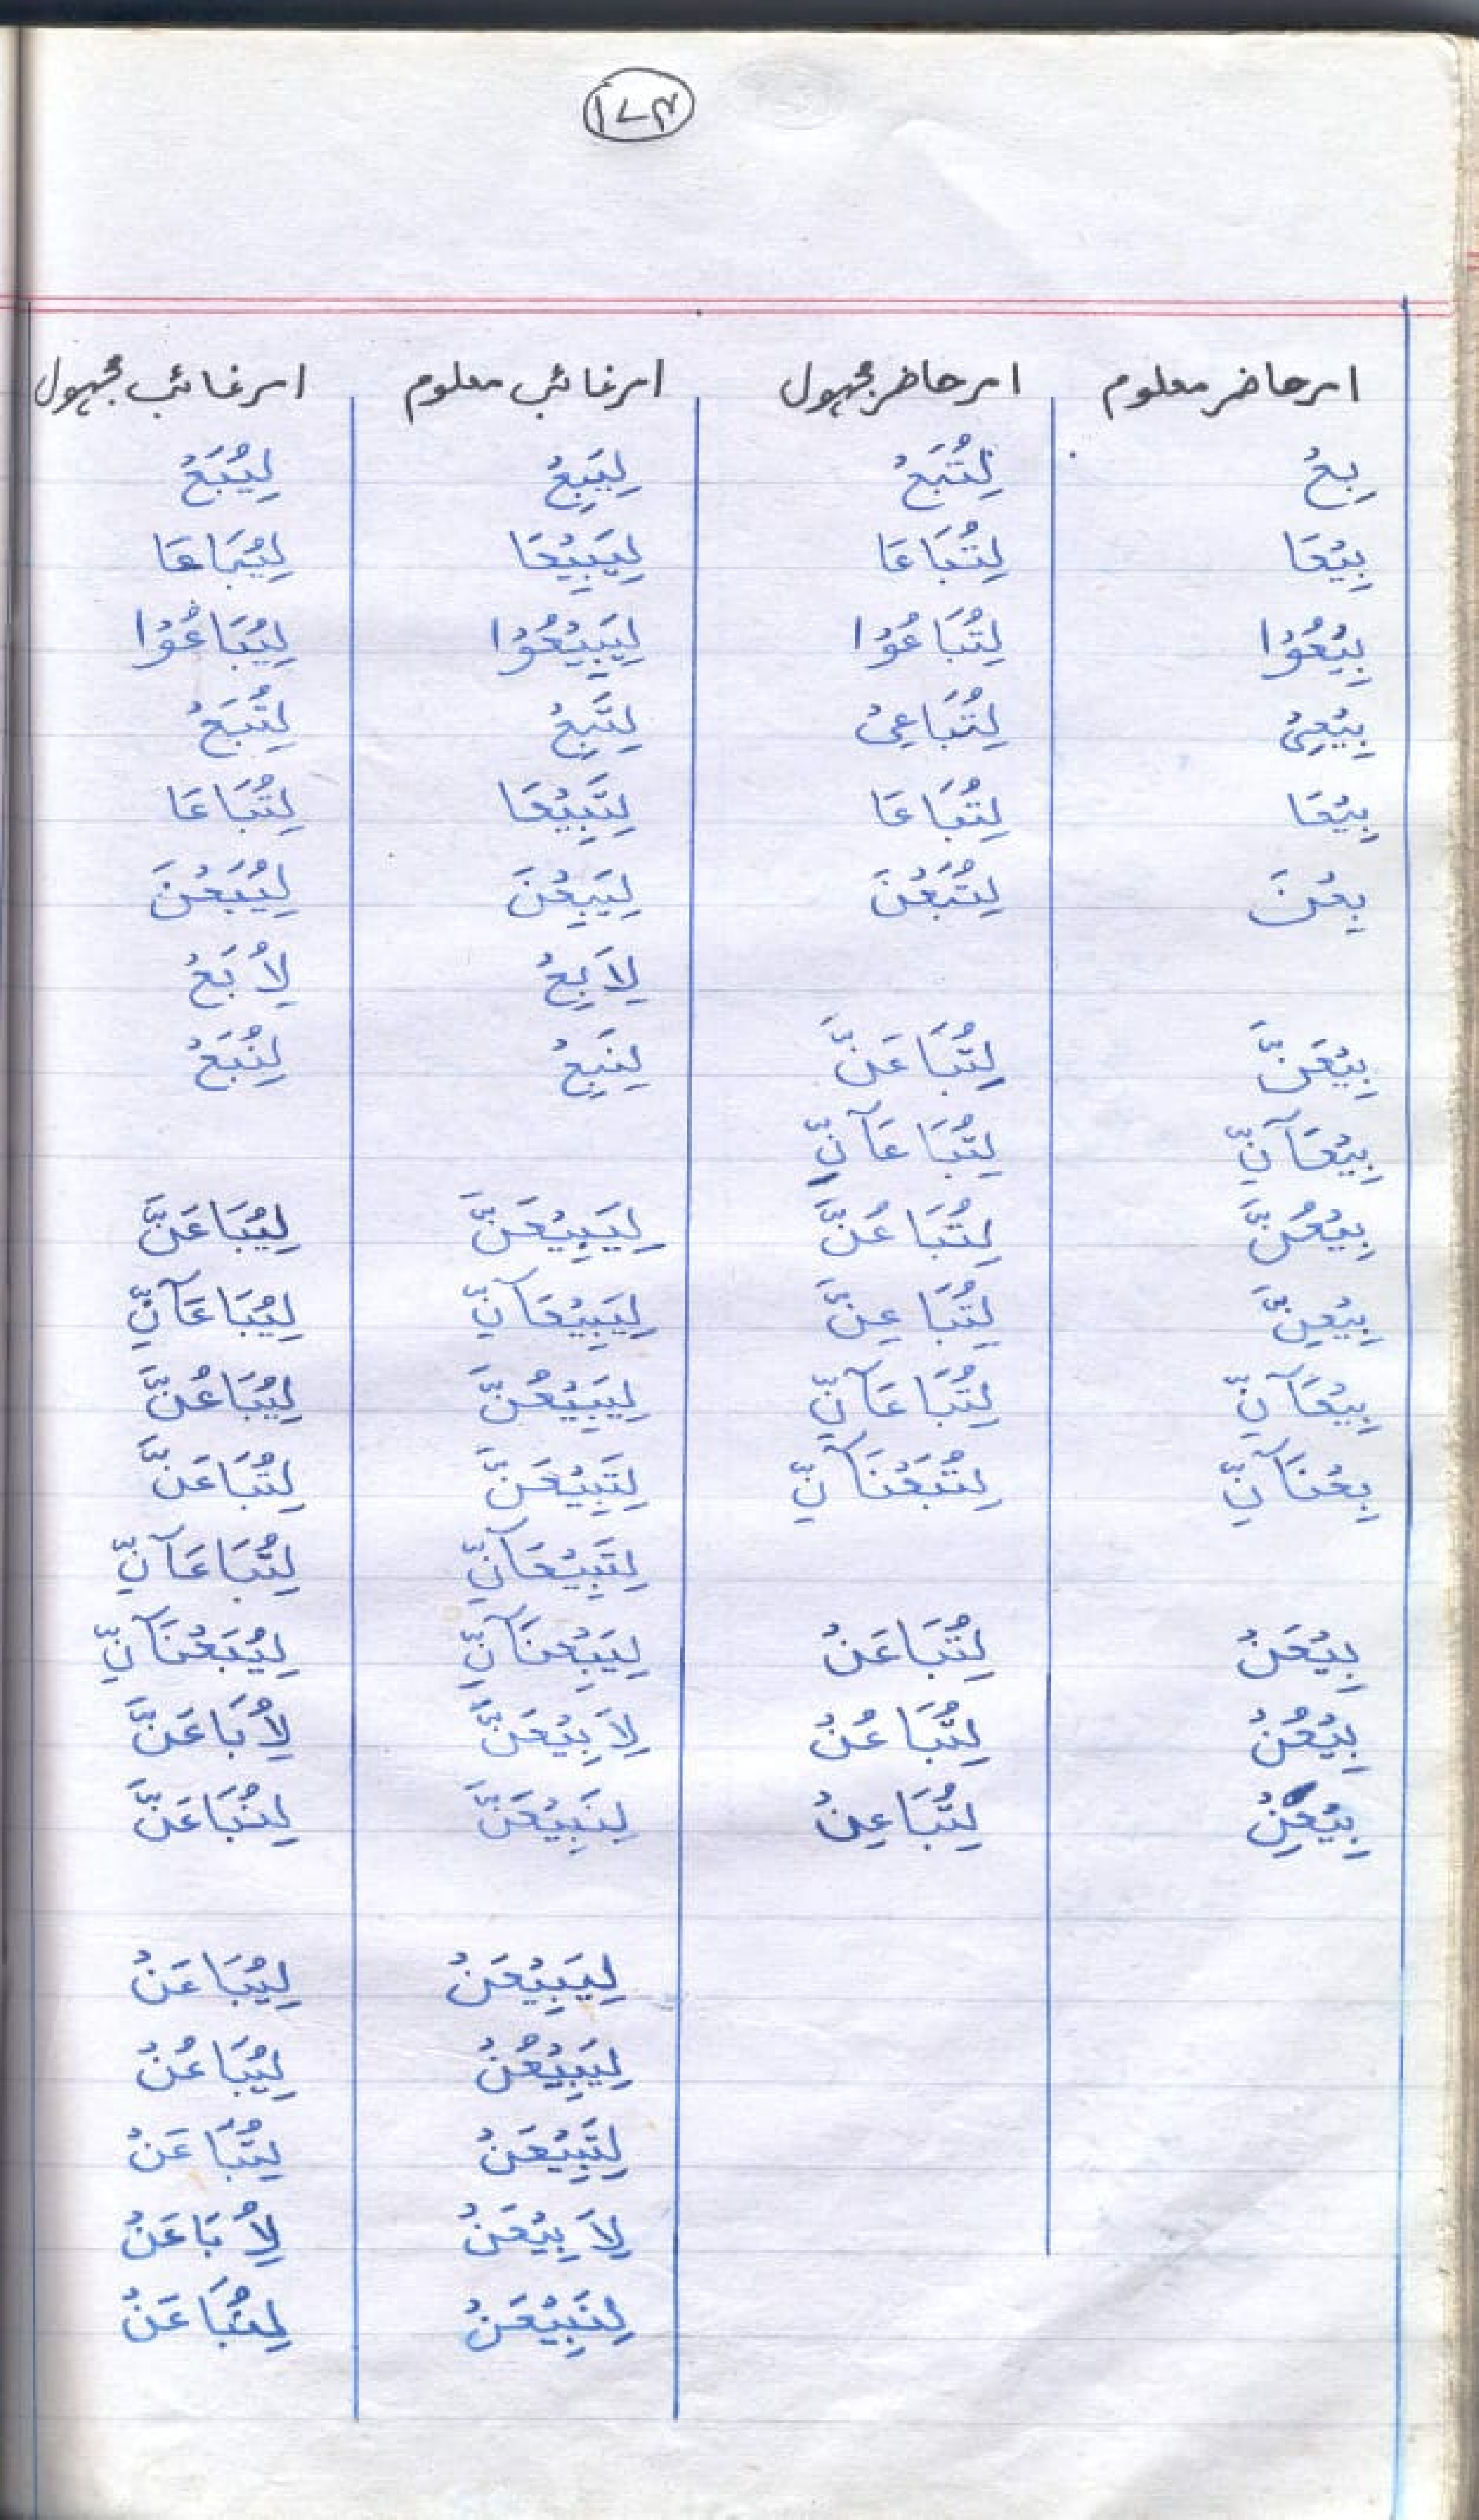 ۱۷۴
امر حاضر معلوم امر حاضر مجہول امر غائب معلوم امر غائب مجہول
بِعْ لِتُبَعْ لِيَبِعْ لِيُبَعْ
بِيْعَا لِتُبَاعَا لِيَبِيْعَا لِيُبَاعَا
بِيْعُوْا لِتُبَاعُوْا لِيَبِيْعُوْا لِيُبَاعُوْا
بِيْعِىْ لِتُبَاعِىْ لِتَبِعْ لِتُبَعْ
بِيْعَا لِتُبَاعَا لِتَبِيْعَا لِتُبَاعَا
بِعْنَ لِتُبَعْنَ لِيَبِعْنَ لِيُبَعْنَ
لِاَبِعْ لِاُبَعْ
بِيْعَنَّ لِتُبَاعَنَّ لِنَبِعْ لِنُبَعْ
بِيْعَآنِّ لِتُبَاعَآنِّ
بِيْعُنَّ لِتُبَاعُنَّ لِيَبِيْعَنَّ لِيُبَاعَنَّ
بِيْعِنَّ لِتُبَاعِنَّ لِيَبِيْعَآنِّ لِيُبَاعَآنِّ
بِيْعَآنِّ لِتُبَاعَآنِّ لِيَبِيْعُنَّ لِيُبَاعُنَّ
بِعْنَآنِّ لِتُبَعْنَآنِّ لِتَبِيْعَنَّ لِتُبَاعَنَّ
لِتَبِيْعَآنِّ لِتُبَاعَآنِّ
بِيْعَنْ لِتُبَاعَنْ لِيَبِعْنَآنِّ لِيُبَعْنَآنِّ
بِيْعُنْ لِتُبَاعُنْ لِاَبِيْعَنَّ لِاُبَاعَنَّ
بِيْعِنْ لِتُبَاعِنْ لِنَبِيْعَنَّ لِنُبَاعَنَّ
لِيَبِيْعَنْ لِيُبَاعَنْ
لِيَبِيْعُنْ لِيُبَاعُنْ
لِتَبِيْعَنْ لِتُبَاعَنْ
لِاَبِيْعَنْ لِاُبَاعَنْ
لِنَبِيْعَنْ لِنُبَاعَنْ